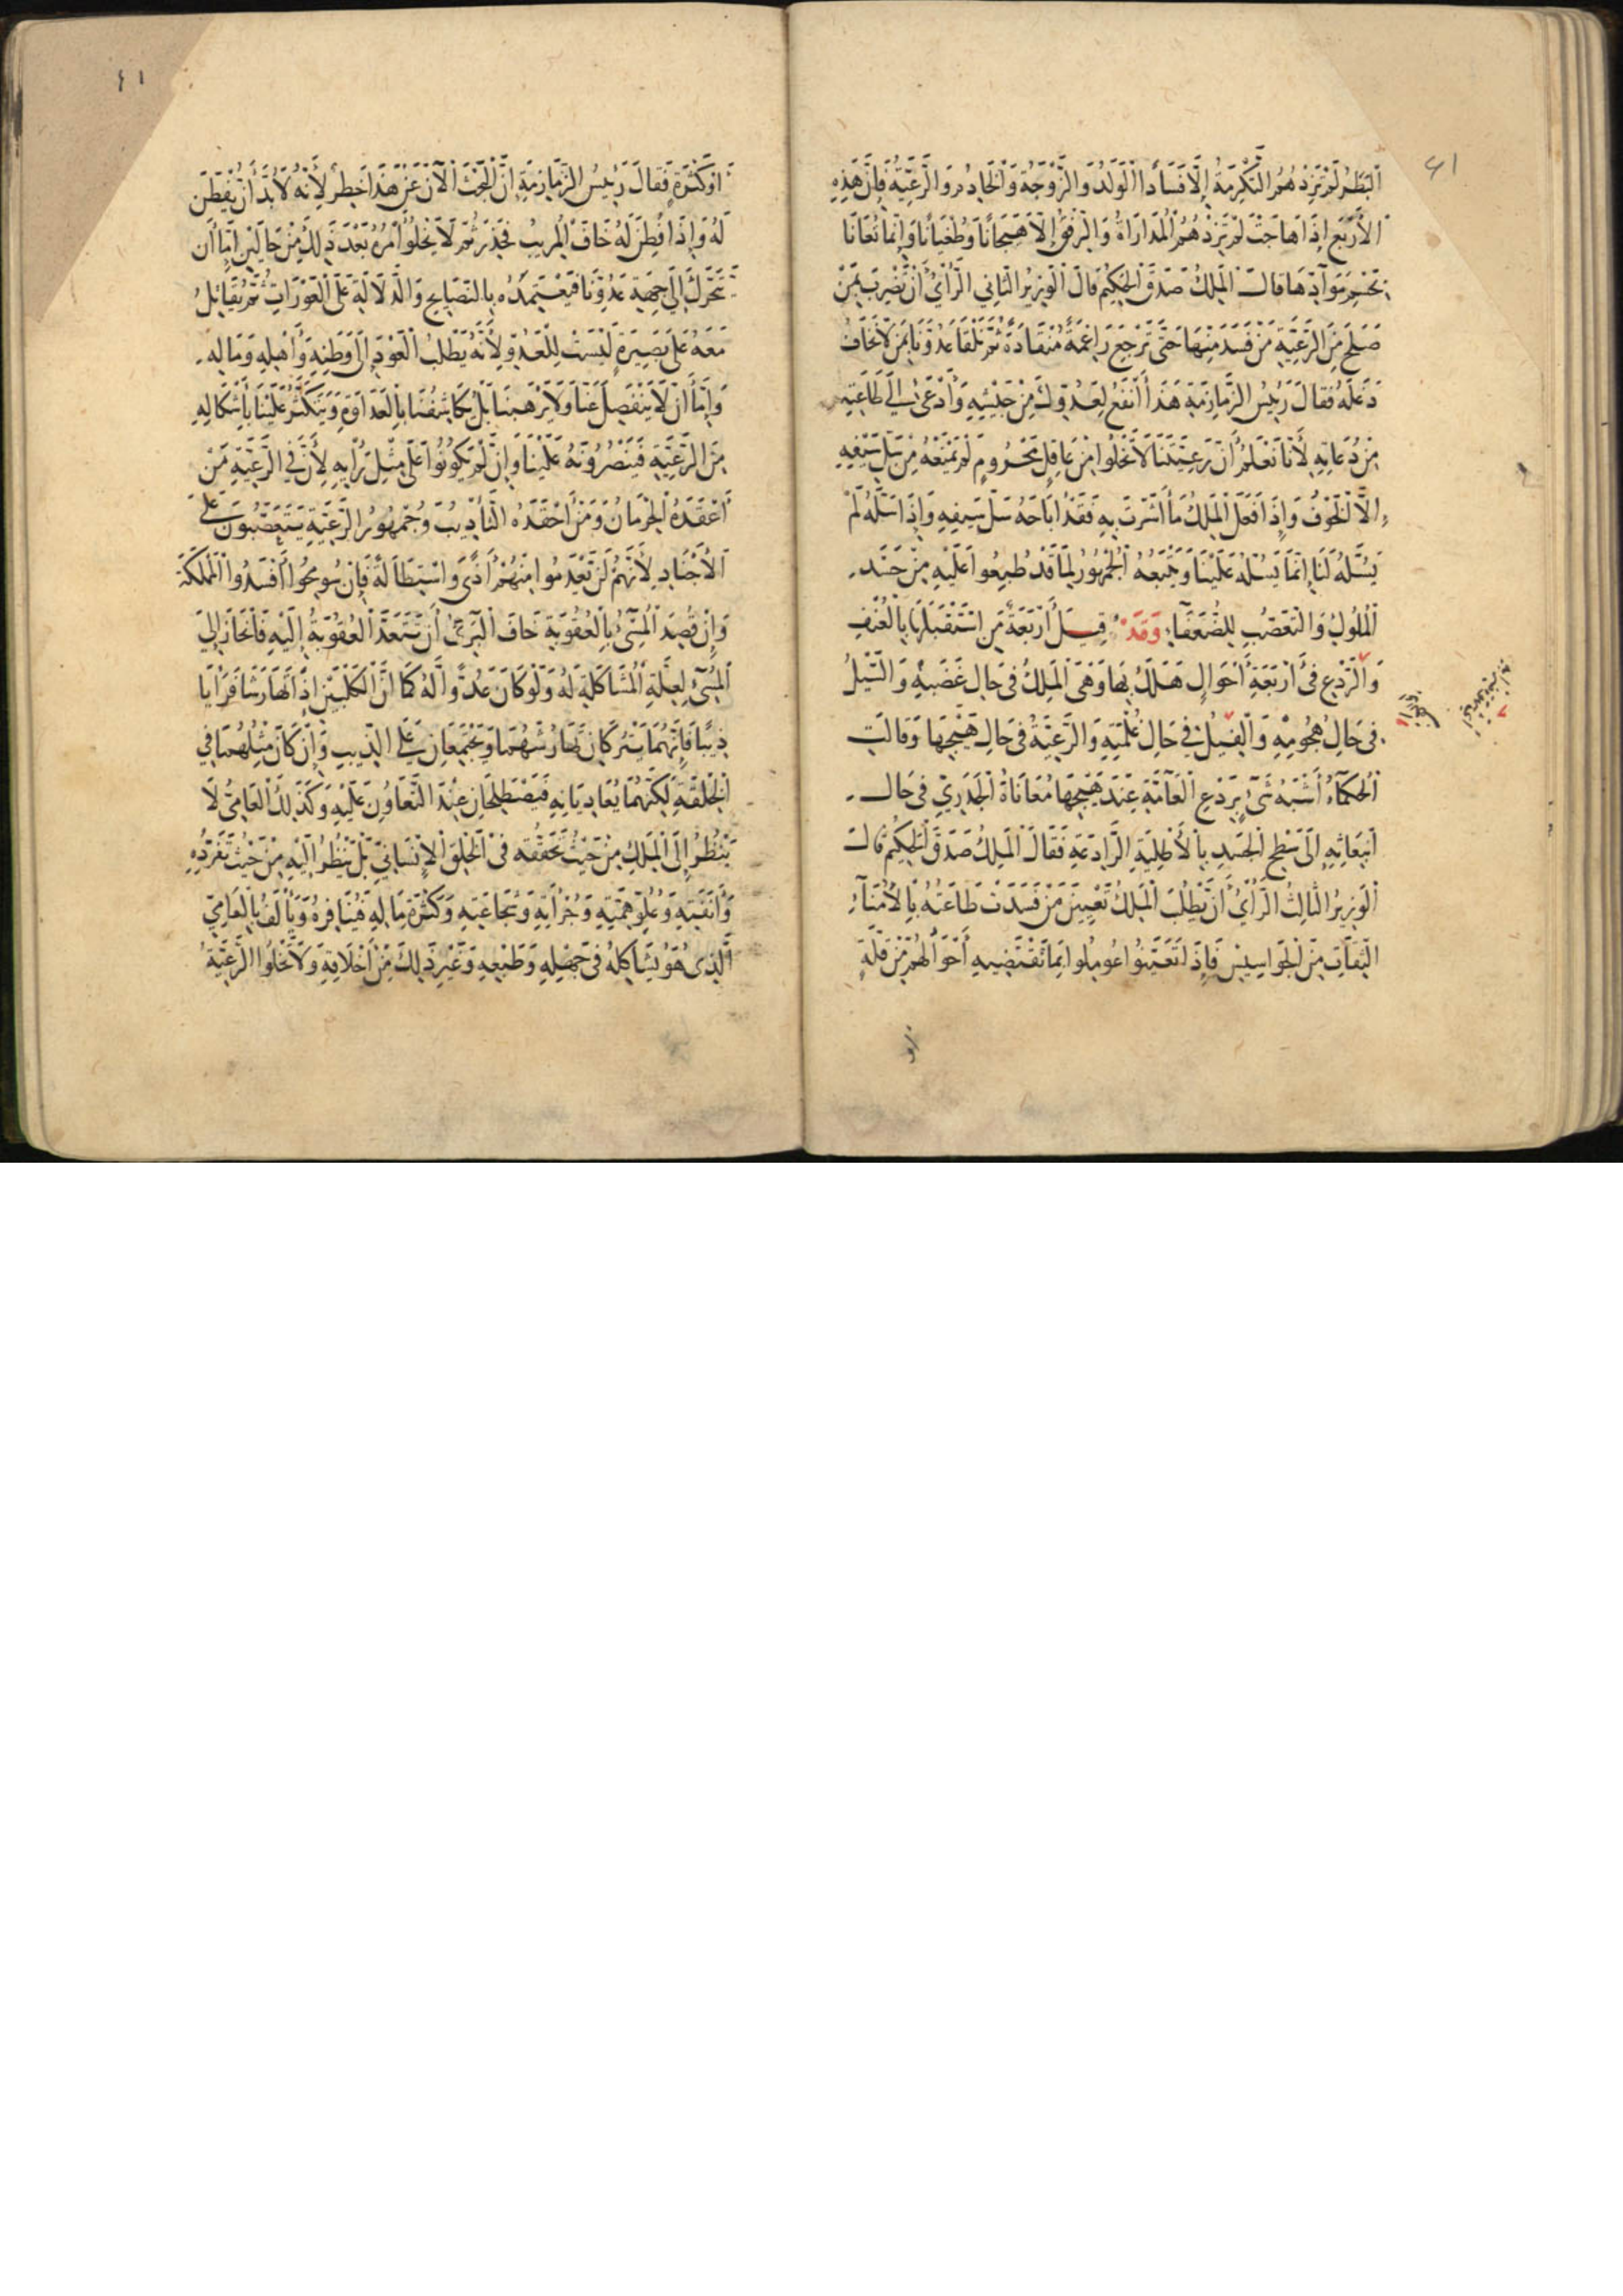 ٤١
البَطَرُ لَمْ تَزِدْهُمُ التَّكْرِمَةُ إِلَّا فَسَادًا الْوَلَدُ وَالزَّوْجَةُ وَالْخَادِمُ وَالرَّعِيَّةُ فَإِنَّ هَذِهِ
الْأَرْبَعَ إِذَا هَاجَتْ لَمْ تَزِدْهُمُ الْمُدَارَاةُ وَالرِّفْقُ إِلَّا هَيَجَانًا وَطُغْيَانًا وَإِنَّمَا تُعَانَا
بِحَسْمِ مَوَآدِّهَا قَالَ الْمَلِكُ صَدَقَ الْحَكِيمُ قَالَ الْوَزِيرُ الثَّانِي الرَّأْيُ أَنْ نَضْرِبَ بِمَنْ
صَلَحَ مِنَ الرَّعِيَّةِ مَنْ فَسَدَ مِنْهَا حَتَّى تَرْجِعَ رَاغِمَةً مُنْقَادَةً ثُمَّ نَلْقَا عَدُوَّنَا بِمَنْ لَا نَخَافُ
دَغَلَهُ فَقَالَ رَئِيسُ الزَّمَازِمَةِ هَذَا أَنْفَعُ لِعَدُوِّكَ مِنْ جَيْشِهِ وَأَدْعَى إِلَى طَاعَتِهِ
مِنْ دُعَاتِهِ لِأَنَّا نَعْلَمُ أَنَّ رَعِيَّتَنَا لَا تَخْلُوا مِنْ عَاقِلٍ مَحْرُومٍ لَمْ يَمْنَعْهُ مِنْ سَلِّ سَيْفِهِ
إِلَّا الْخَوْفُ وَإِذَا فَعَلَ الْمَلِكُ مَا أَشَرْتَ بِهِ فَقَدْ أَبَاحَهُ سَلَّ سَيْفِهِ وَإِذَا سَلَّهُ لَمْ
يَسُلَّهُ لَنَا إِنَّمَا يَسُلُّهُ عَلَيْنَا وَيَتْبَعُهُ الْجُمْهُورُ لِمَا قَدْ طُبِعُوا عَلَيْهِ مِنْ حَسَدِ
الْمُلُوكِ وَالتَّعَصُّبِ لِلضُّعَفَاءِ وَقَدْ قِيلَ أَرْبَعَةٌ مَنِ اسْتَقْبَلَهَا بِالْعُنْفِ
وَالرَّدْعِ فِي أَرْبَعَةِ أَحْوَالٍ هَلَكَ بِهَا وَهِيَ الْمَلِكُ فِي حَالِ غَضَبِهِ وَالسَّيْلُ
فِي حَالِ هُجُومِهِ وَالْفِيلُ فِي حَالِ غُلْمَتِهِ وَالرَّعِيَّةُ فِي حَالِ هَيْجِهَا وَقَالَتِ
الْحُكَمَآءُ أَشْبَهُ شَيْءٍ بِرَدْعِ الْعَآمَّةِ عِنْدَ هَيْجِهَا مُعَانَاةُ الْجُدَرِيِّ فِي حَالِ
انْبِعَاثِهِ إِلَى سَطْحِ الْجَسَدِ بِالْأَطْلِيَةِ الرَّادِعَةِ فَقَالَ الْمَلِكُ صَدَقَ الْحَكِيمُ قَالَ
الْوَزِيرُ الثَّالِثُ الرَّأْيُ أَنْ يَطْلُبَ الْمَلِكُ تَعْيِينَ مَنْ فَسَدَتْ طَاعَتُهُ بِالْأُمَنَآءِ
الثِّقَاتِ مِنَ الْجَوَاسِيسِ فَإِذَا تَعَيَّنُوا عُومِلُوا بِمَا تَقْتَضِيهِ أَحْوَالُهُمْ مِنْ قِلَّةٍ
أو
٤١
أَوْ كَثْرَةٍ فَقَالَ رَئِيسُ الزَّمَازِمَةِ إِنَّ الْبَحْثَ الْآنَ عَنْ هَذَا خَطِرٌ لِأَنَّهُ لَا بُدَّ أَنْ يُفْطَنَ
لَهُ وَإِذَا فُطِنَ لَهُ خَافَ الْمُرِيبُ فَحَذِرَ ثُمَّ لَا يَخْلُوا أَمْرُهُ بَعْدَ ذَلِكَ مِنْ حَالَيْنِ إِمَّا أَنْ
يَتَحَرَّكَ إِلَى جِهَةِ عَدُوِّنَا فَيَعْتَمِدُهُ بِالنَّصَايِحِ وَالدَّلَالَةِ عَلَى الْعَوْرَاتِ ثُمَّ يُقَاتِلُ
مَعَهُ عَلَى بَصِيرَةٍ لَيْسَتْ لِلْعَدُوِّ لِأَنَّهُ يَطْلُبُ الْعَوْدَ إِلَى وَطَنِهِ وَأَهْلِهِ وَمَالِهِ
وَإِمَّا أَنْ لَا يَنْفَصِلَ عَنَّا وَلَا يَرْهَبَنَا بَلْ يُكَاشِفُنَا بِالْعَدَاوَةِ وَيَتَكَثَّرُ عَلَيْنَا بِأَشْكَالِهِ
مِنَ الرَّعِيَّةِ فَيَنْصُرُونَهُ عَلَيْنَا وَإِنْ لَمْ يَكُونُوا عَلَى مِثْلِ رَأْيِهِ لِأَنَّ فِي الرَّعِيَّةِ مَنْ
أَحْقَدَهُ الْحِرْمَانُ وَمَنْ أَحْقَدَهُ التَّأْدِيبُ وَجُمْهُورُ الرَّعِيَّةِ يَتَعَصَّبُونَ عَلَى
الْأَجْنَادِ لِأَنَّهُمْ لَنْ يَعْدَمُوا مِنْهُمْ أَذًى وَاسْتِطَالَةً فَإِنْ سُومِحُوا أَفْسَدُوا الْمَمْلَكَةَ
وَإِنْ قُصِدَ الْمُسِيءُ بِالْعُقُوبَةِ خَافَ الْبَرِيءُ أَنْ تَتَعَدَّا الْعُقُوبَةُ إِلَيْهِ فَانْحَازَ إِلَى
الْمُسِيءِ لِعِلَّةِ الْمُشَاكَلَةِ لَهُ وَلَوْ كَانَ عَدُوًّا لَهُ كَمَا أَنَّ الْكَلْبَيْنِ إِذَا تَهَارَشَا فَرَأَيَا
ذِيبًا فَإِنَّهُمَا يَتْرُكَانِ تَهَارُشَهُمَا وَيَجْتَمِعَانِ عَلَى الذِّيبِ وَإِنْ كَانَ مِثْلَهُمَا فِي
الْخِلْقَةِ لَكِنَّهُمَا يُعَادِيَانِهِ فَيَصْطَلِحَانِ عِنْدَ التَّعَاوُنِ عَلَيْهِ وَكَذَلِكَ الْعَامِّيُّ لَا
يَنْظُرُ إِلَى الْمَلِكِ مِنْ حَيْثُ تَحَقُّقِهِ فِي الْخَلْقِ الْإِنْسَانِيِّ بَلْ يَنْظُرُ إِلَيْهِ مِنْ حَيْثُ تَفَرُّدِهِ
وَأَنَفَتِهِ وَعُلُوِّ هِمَّتِهِ وَجُرْأَتِهِ وَشَجَاعَتِهِ وَكَثْرَةِ مَالِهِ فَيُنَافِرُهُ وَيَأْلَفُ بِالْعَامِّيِّ
الَّذِي هُوَ يُشَاكِلُهُ فِي جَهْلِهِ وَطَبْعِهِ وَغَيْرِ ذَلِكَ مِنْ أَخْلَاقِهِ وَلَا تَخْلُوا الرَّعِيَّةُ